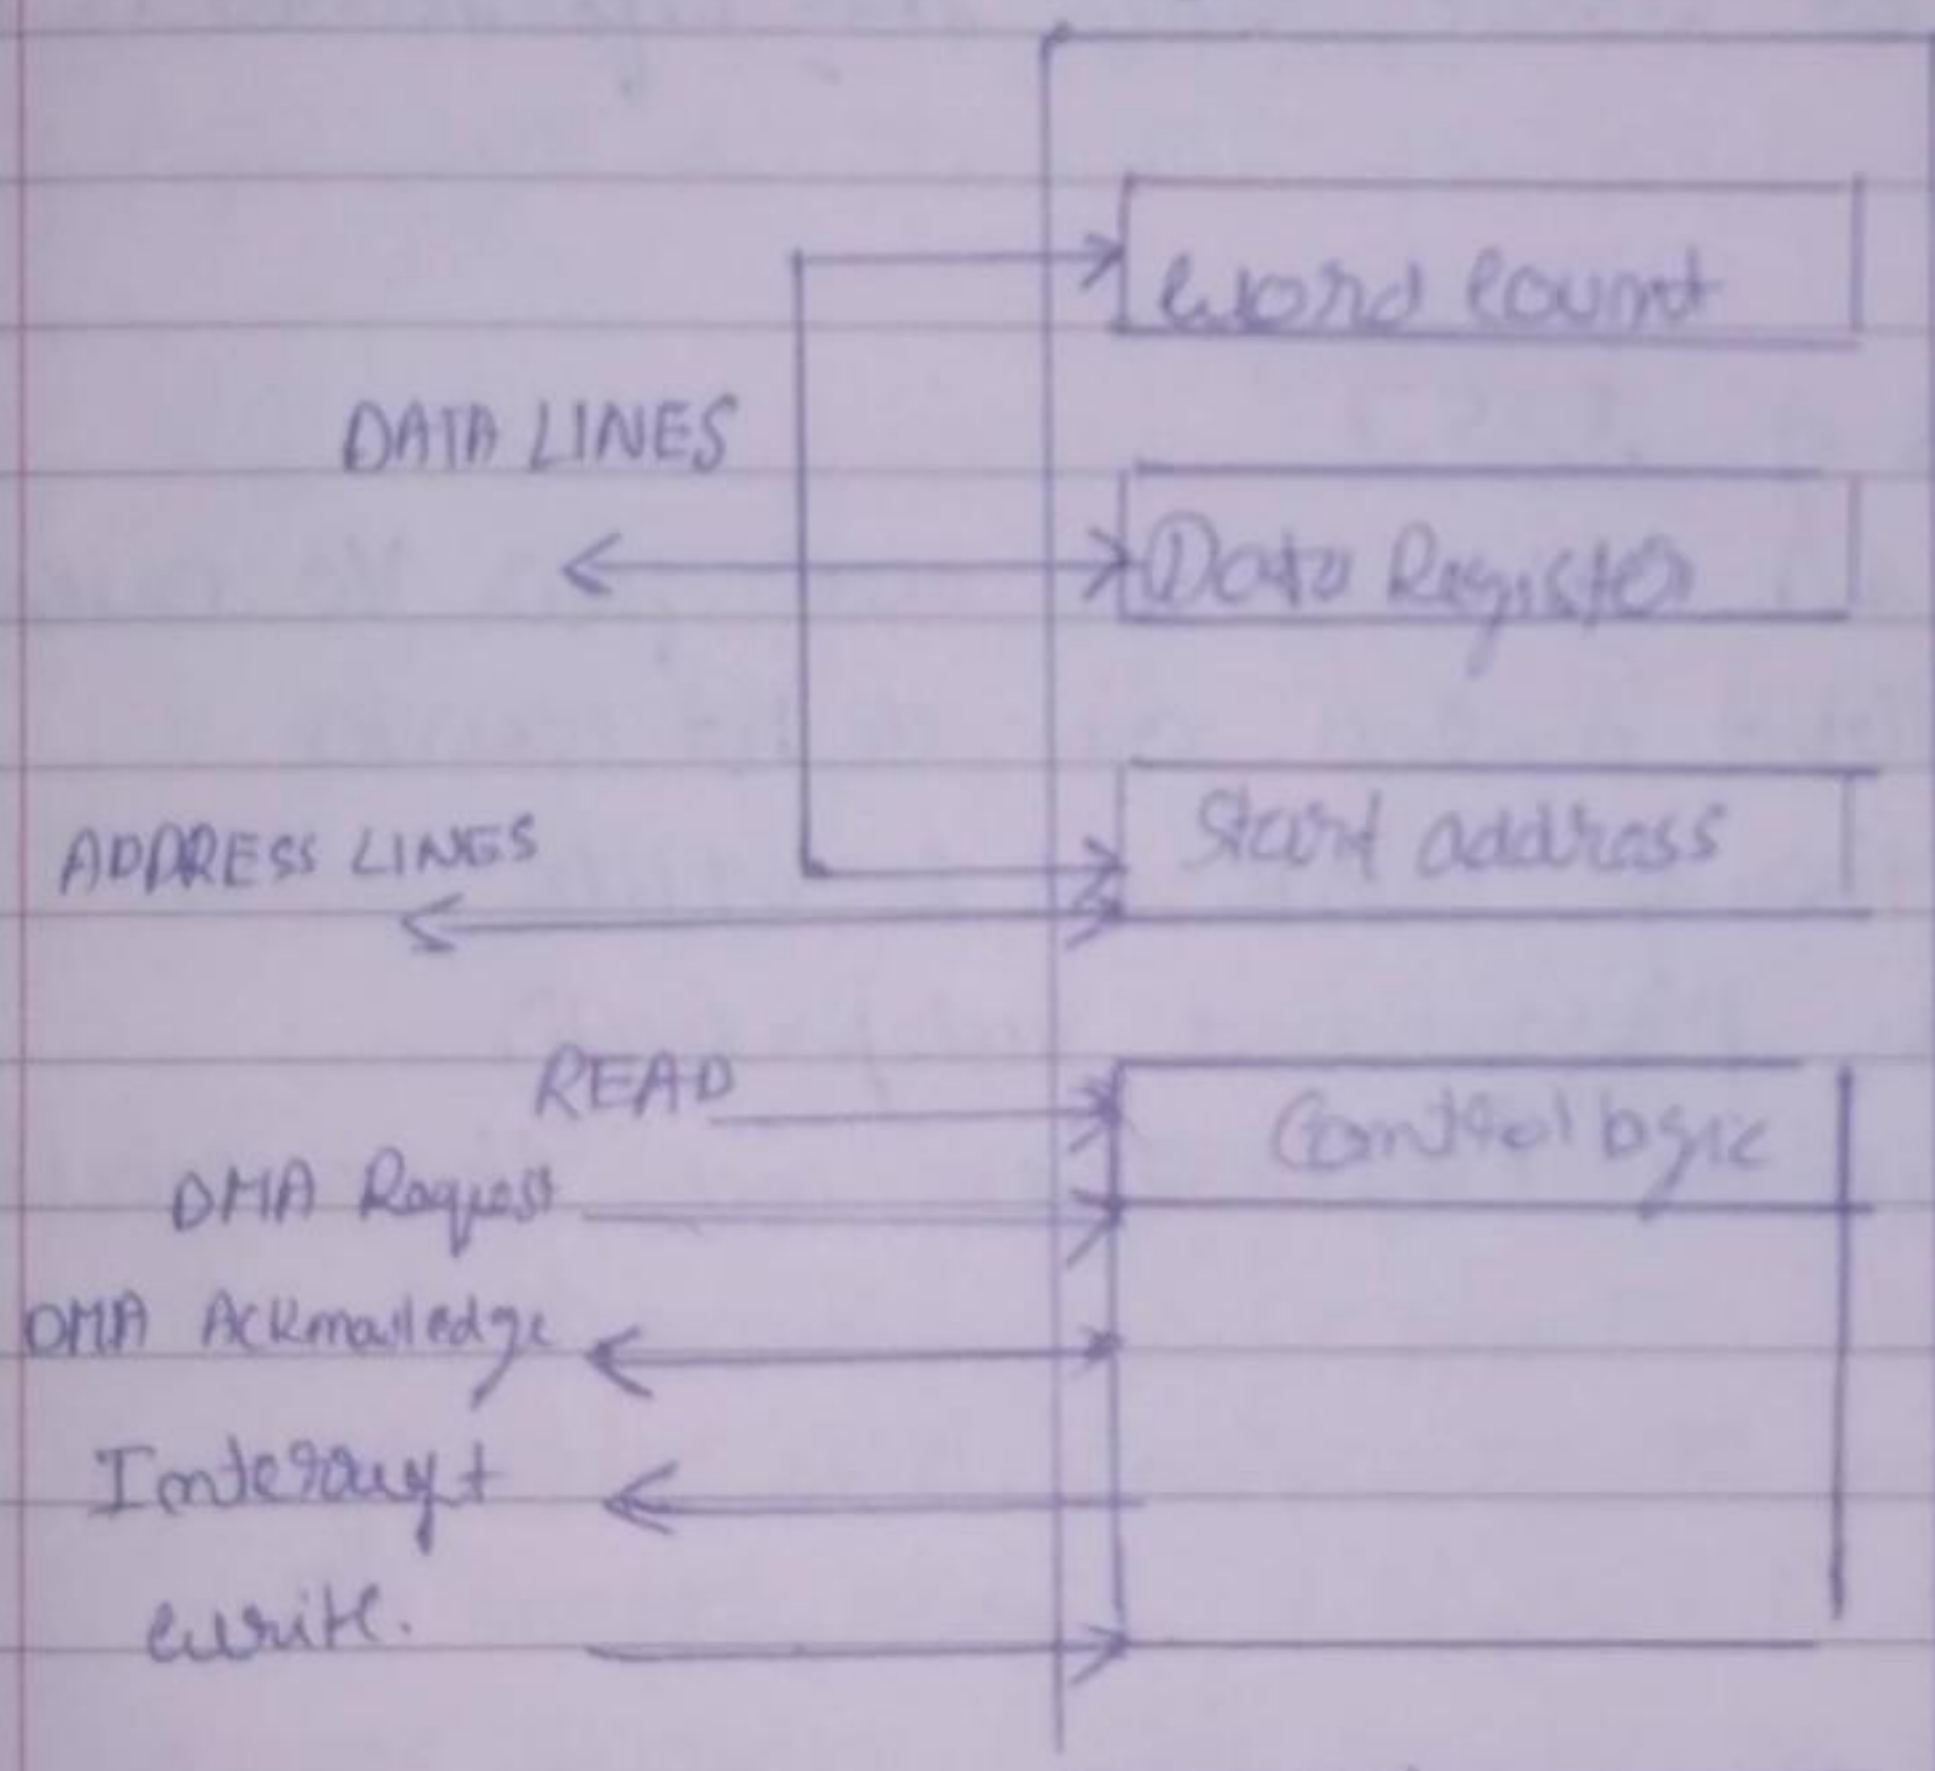 Word Count
DATA LINES
Data Register
Start address
ADDRESS LINES
READ
Control logic
DMA Request
DMA Acknowledge
Interrupt
Write.